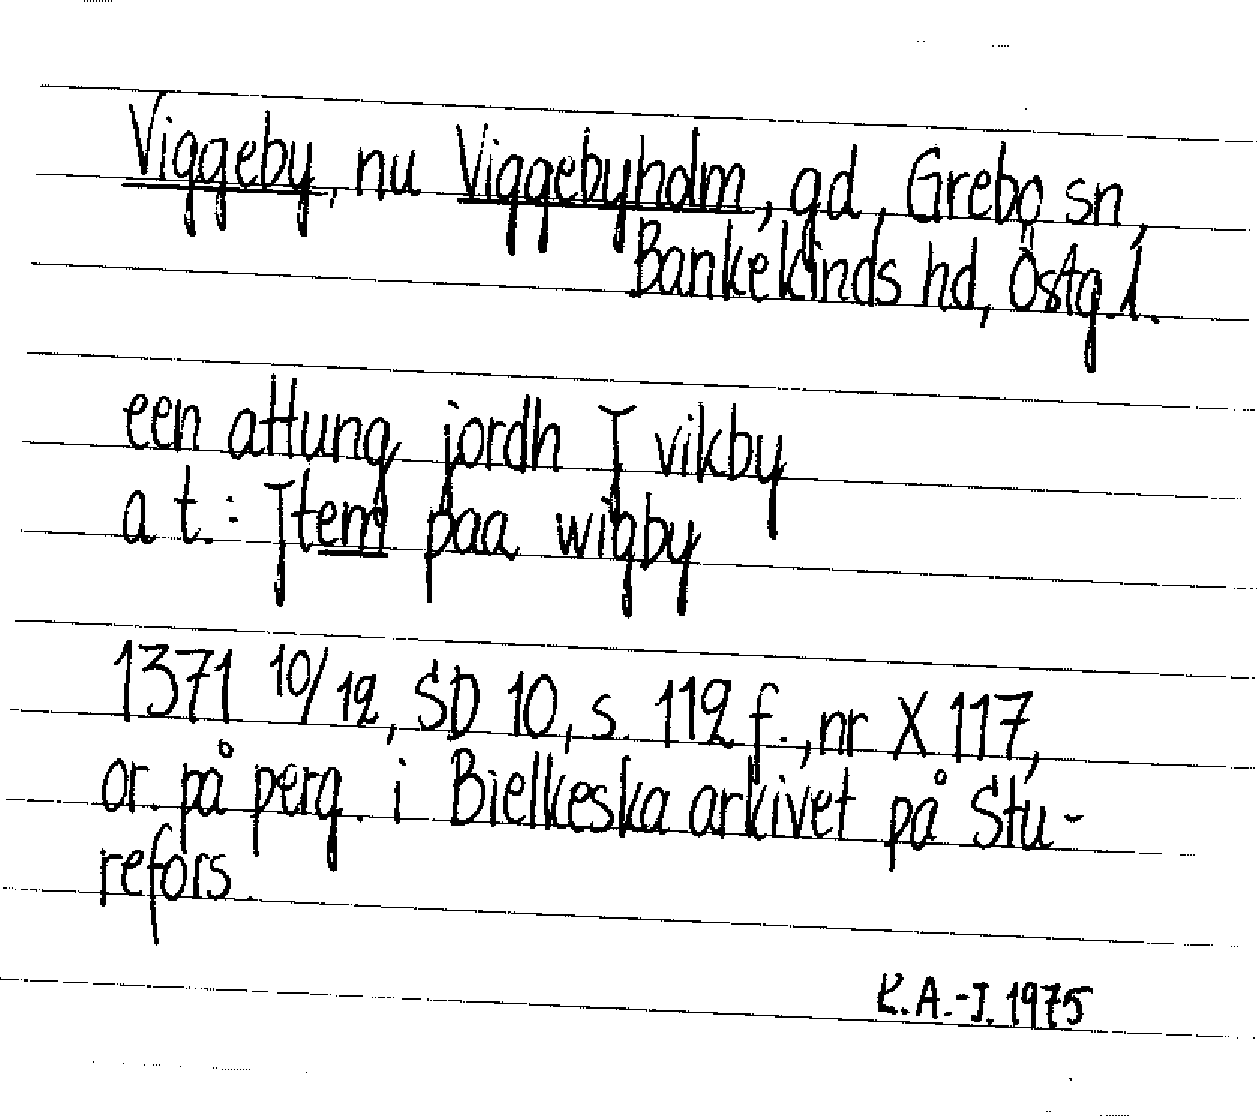 Viggeby, nu Viggebyholm, gd, Grebo sn,
Bankekinds hd, Östg. l.
een attung jordh J vikby
a t.: Jtem paa wigby
1371 10/12, SD 10, s. 112 f., nr X 117,
or. på perg. i Bielkeska arkivet på Stu-
refors.
K.A.-J. 1975